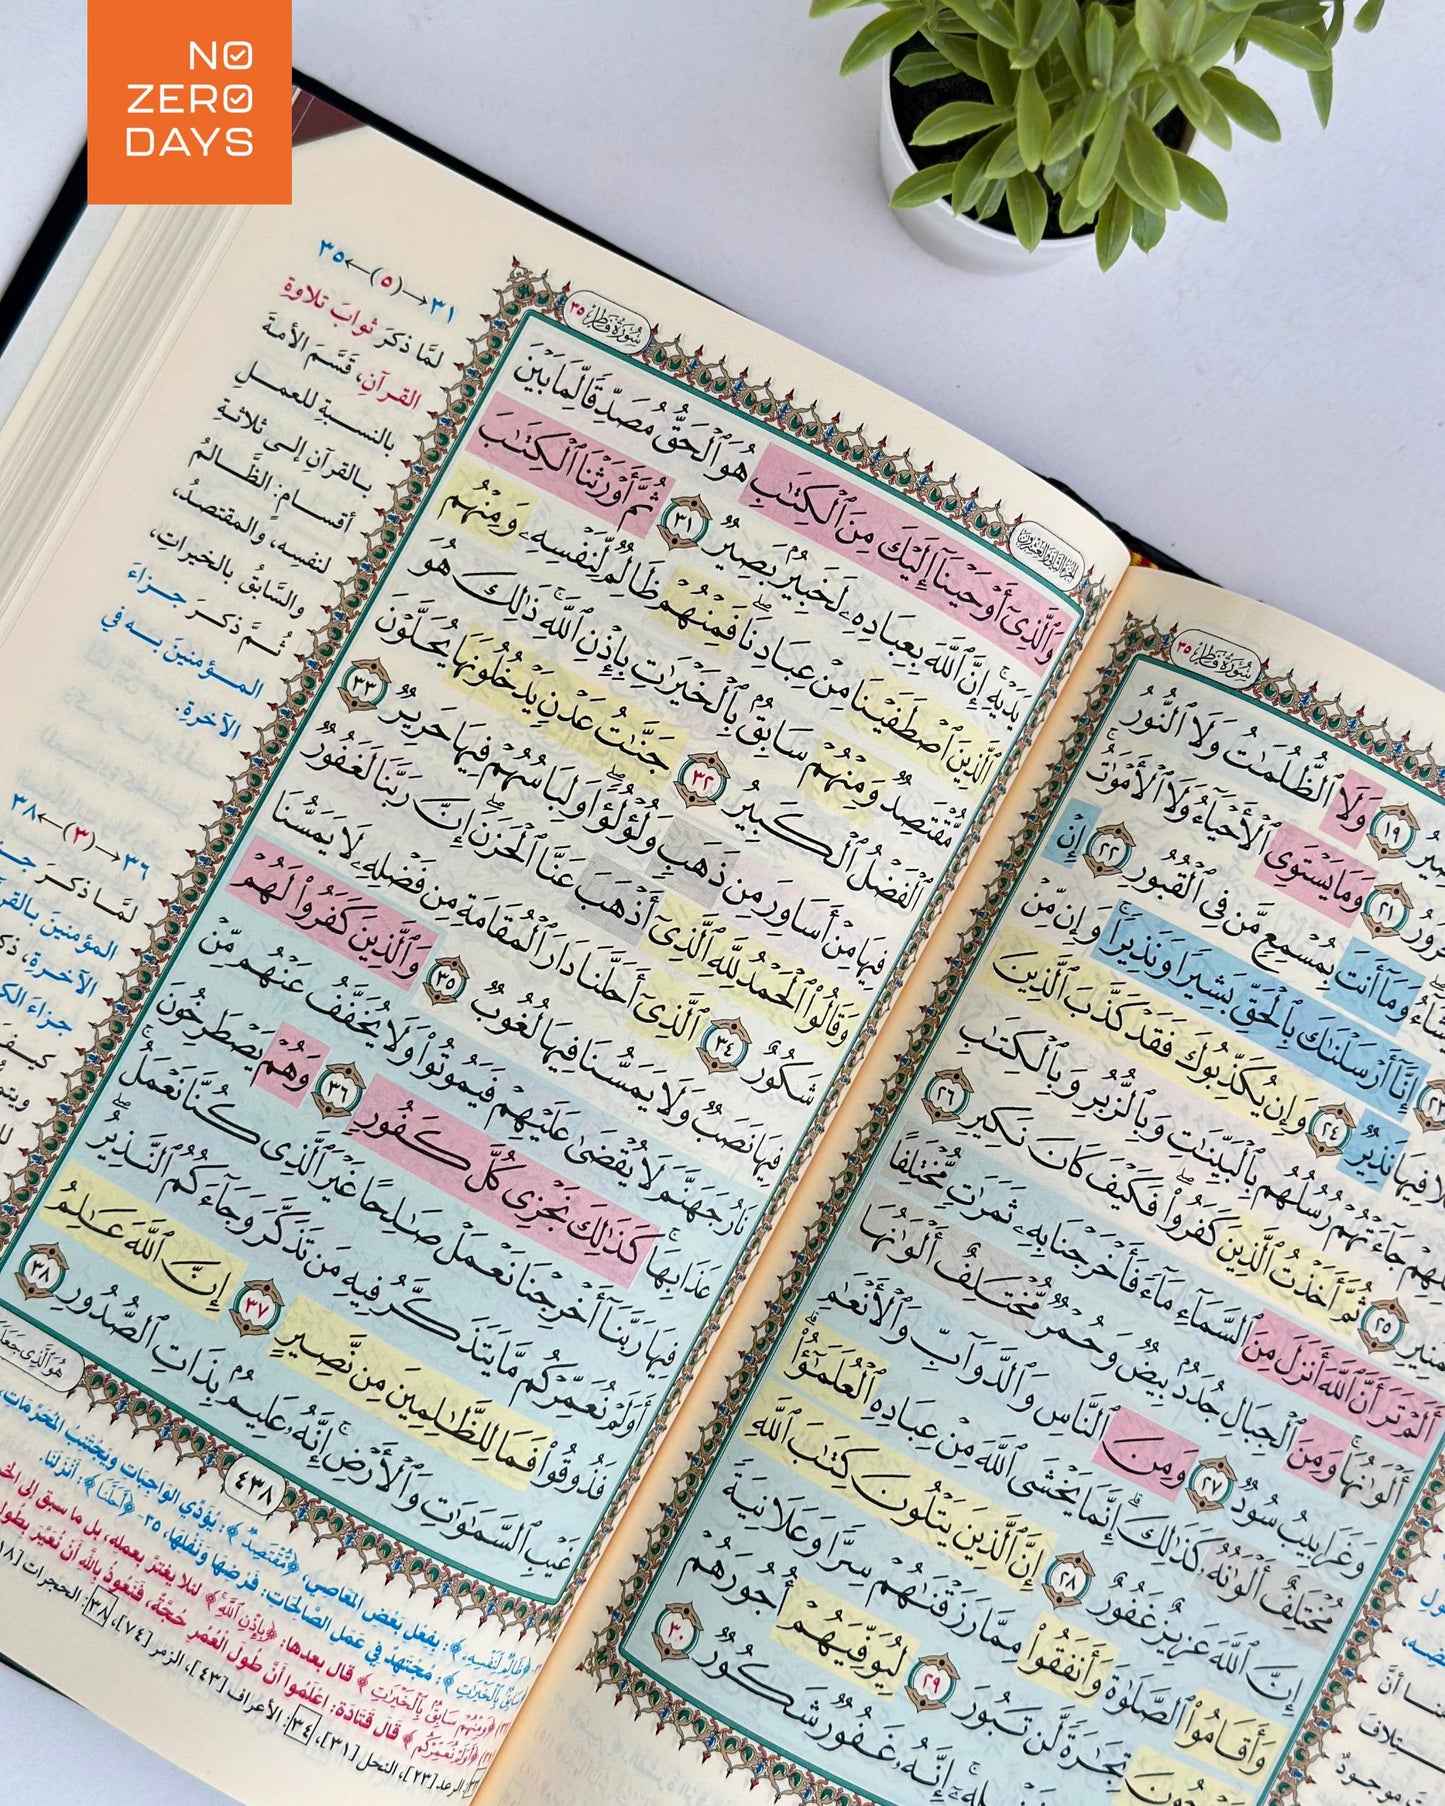 NO
ZERO
DAYS
سُورَةُ فَاطِرٍ ٣٥
١٩ وَلَا ٱلظُّلُمَٰتُ وَلَا ٱلنُّورُ
٢١ وَمَا يَسْتَوِى ٱلْأَحْيَآءُ وَلَا ٱلْأَمْوَٰتُ ۚ
وَمَآ أَنتَ بِمُسْمِعٍ مَّن فِى ٱلْقُبُورِ ٢٢ إِنْ
٢٣ إِنَّآ أَرْسَلْنَٰكَ بِٱلْحَقِّ بَشِيرًا وَنَذِيرًا ۚ وَإِن مِّنْ
فِيهَا نَذِيرٌ ٢٤ وَإِن يُكَذِّبُوكَ فَقَدْ كَذَّبَ ٱلَّذِينَ
جَآءَتْهُمْ رُسُلُهُم بِٱلْبَيِّنَٰتِ وَبِٱلزُّبُرِ وَبِٱلْكِتَٰبِ
٢٥ ثُمَّ أَخَذْتُ ٱلَّذِينَ كَفَرُوا۟ ۖ فَكَيْفَ كَانَ نَكِيرِ ٢٦
أَلَمْ تَرَ أَنَّ ٱللَّهَ أَنزَلَ مِنَ ٱلسَّمَآءِ مَآءً فَأَخْرَجْنَا بِهِۦ ثَمَرَٰتٍ مُّخْتَلِفًا
أَلْوَٰنُهَا ۚ وَمِنَ ٱلْجِبَالِ جُدَدٌۢ بِيضٌ وَحُمْرٌ مُّخْتَلِفٌ أَلْوَٰنُهَا
وَغَرَابِيبُ سُودٌ ٢٧ وَمِنَ ٱلنَّاسِ وَٱلدَّوَآبِّ وَٱلْأَنْعَٰمِ
مُخْتَلِفٌ أَلْوَٰنُهُۥ كَذَٰلِكَ ۗ إِنَّمَا يَخْشَى ٱللَّهَ مِنْ عِبَادِهِ ٱلْعُلَمَٰٓؤُا۟ ۗ
إِنَّ ٱللَّهَ عَزِيزٌ غَفُورٌ ٢٨ إِنَّ ٱلَّذِينَ يَتْلُونَ كِتَٰبَ ٱللَّهِ
وَأَقَامُوا۟ ٱلصَّلَوٰةَ وَأَنفَقُوا۟ مِمَّا رَزَقْنَٰهُمْ سِرًّا وَعَلَانِيَةً
تِجَٰرَةً لَّن تَبُورَ ٢٩ لِيُوَفِّيَهُمْ أُجُورَهُمْ
إِنَّهُۥ غَفُورٌ شَكُورٌ ٣٠
الجزء الثاني والعشرون
سُورَةُ فَاطِرٍ ٣٥
وَٱلَّذِىٓ أَوْحَيْنَآ إِلَيْكَ مِنَ ٱلْكِتَٰبِ هُوَ ٱلْحَقُّ مُصَدِّقًا لِّمَا بَيْنَ
يَدَيْهِ ۗ إِنَّ ٱللَّهَ بِعِبَادِهِۦ لَخَبِيرٌۢ بَصِيرٌ ٣١ ثُمَّ أَوْرَثْنَا ٱلْكِتَٰبَ
ٱلَّذِينَ ٱصْطَفَيْنَا مِنْ عِبَادِنَا ۖ فَمِنْهُمْ ظَالِمٌ لِّنَفْسِهِۦ وَمِنْهُم
مُّقْتَصِدٌ وَمِنْهُمْ سَابِقٌۢ بِٱلْخَيْرَٰتِ بِإِذْنِ ٱللَّهِ ۚ ذَٰلِكَ هُوَ
ٱلْفَضْلُ ٱلْكَبِيرُ ٣٢ جَنَّٰتُ عَدْنٍ يَدْخُلُونَهَا يُحَلَّوْنَ
فِيهَا مِنْ أَسَاوِرَ مِن ذَهَبٍ وَلُؤْلُؤًا ۖ وَلِبَاسُهُمْ فِيهَا حَرِيرٌ ٣٣
وَقَالُوا۟ ٱلْحَمْدُ لِلَّهِ ٱلَّذِىٓ أَذْهَبَ عَنَّا ٱلْحَزَنَ ۖ إِنَّ رَبَّنَا لَغَفُورٌ
شَكُورٌ ٣٤ ٱلَّذِىٓ أَحَلَّنَا دَارَ ٱلْمُقَامَةِ مِن فَضْلِهِۦ لَا يَمَسُّنَا
فِيهَا نَصَبٌ وَلَا يَمَسُّنَا فِيهَا لُغُوبٌ ٣٥ وَٱلَّذِينَ كَفَرُوا۟ لَهُمْ
نَارُ جَهَنَّمَ لَا يُقْضَىٰ عَلَيْهِمْ فَيَمُوتُوا۟ وَلَا يُخَفَّفُ عَنْهُم مِّنْ
عَذَابِهَا ۚ كَذَٰلِكَ نَجْزِى كُلَّ كَفُورٍ ٣٦ وَهُمْ يَصْطَرِخُونَ
فِيهَا رَبَّنَآ أَخْرِجْنَا نَعْمَلْ صَٰلِحًا غَيْرَ ٱلَّذِى كُنَّا نَعْمَلُ ۚ
أَوَلَمْ نُعَمِّرْكُم مَّا يَتَذَكَّرُ فِيهِ مَن تَذَكَّرَ وَجَآءَكُمُ ٱلنَّذِيرُ ۖ
فَذُوقُوا۟ فَمَا لِلظَّٰلِمِينَ مِن نَّصِيرٍ ٣٧ إِنَّ ٱللَّهَ عَٰلِمُ
غَيْبِ ٱلسَّمَٰوَٰتِ وَٱلْأَرْضِ ۚ إِنَّهُۥ عَلِيمٌۢ بِذَاتِ ٱلصُّدُورِ ٣٨
٤٣٨
٣١→(٥)←٣٥
لمَّا ذكرَ ثوابَ تلاوةِ
القرآنِ، قَسَّمَ الأمةَ
بالنسبةِ للعملِ
بالقرآنِ إلى ثلاثةِ
أقسامٍ: الظَّالمُ
لنفسِه، والمقتصدُ،
والسَّابقُ بالخيراتِ،
ثُمَّ ذكرَ جزاءَ
المؤمنينَ به في
الآخرةِ.
٣٦→(٣)←٣٨
لمَّا ذكرَ
المؤمنينَ
الآخرةِ،
جزاءَ
كيفَ
﴿ظَالِمٌ لِّنَفْسِهِۦ﴾: بفعل بعض المعاصي، ﴿مُّقْتَصِدٌ﴾: يؤدي الواجبات ويجتنب المحرمات،
﴿سَابِقٌۢ بِٱلْخَيْرَٰتِ﴾: مجتهدٌ في عمل الصالحات، فرضها ونفلها، ٣٥- ﴿أَحَلَّنَا﴾: أنزلنا.
﴿وَمِنْهُمْ سَابِقٌۢ بِٱلْخَيْرَٰتِ﴾ قال بعدها: ﴿بِإِذْنِ ٱللَّهِ﴾ لئلا يغترَّ بعمله، بل ما سبق إلى
﴿أَوَلَمْ نُعَمِّرْكُم﴾ قال قتادة: اعلموا أنَّ طول العُمر حُجَّةٌ، فنعوذ بالله أن نُعيَّر بطول
الرعد [٢٣]، النحل [٣١]، ٣٤: الأعراف [٤٣]، الزمر [٧٤]، ٣٨: الحجرات